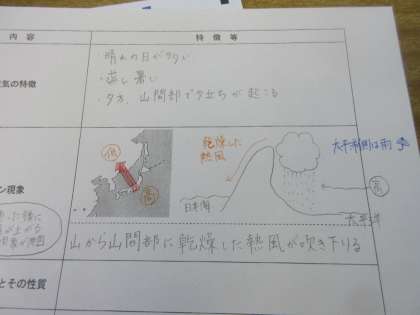 内容
特徴等
気の特徴
・晴れの日が多い
・蒸し暑い
・夕方、山間部で夕立ちが起こる
ン現象
低
高
乾燥した
熱風
太平洋側は雨
高
日本海
太平洋
山から山間部に乾燥した熱風が吹き下りる
とその性質